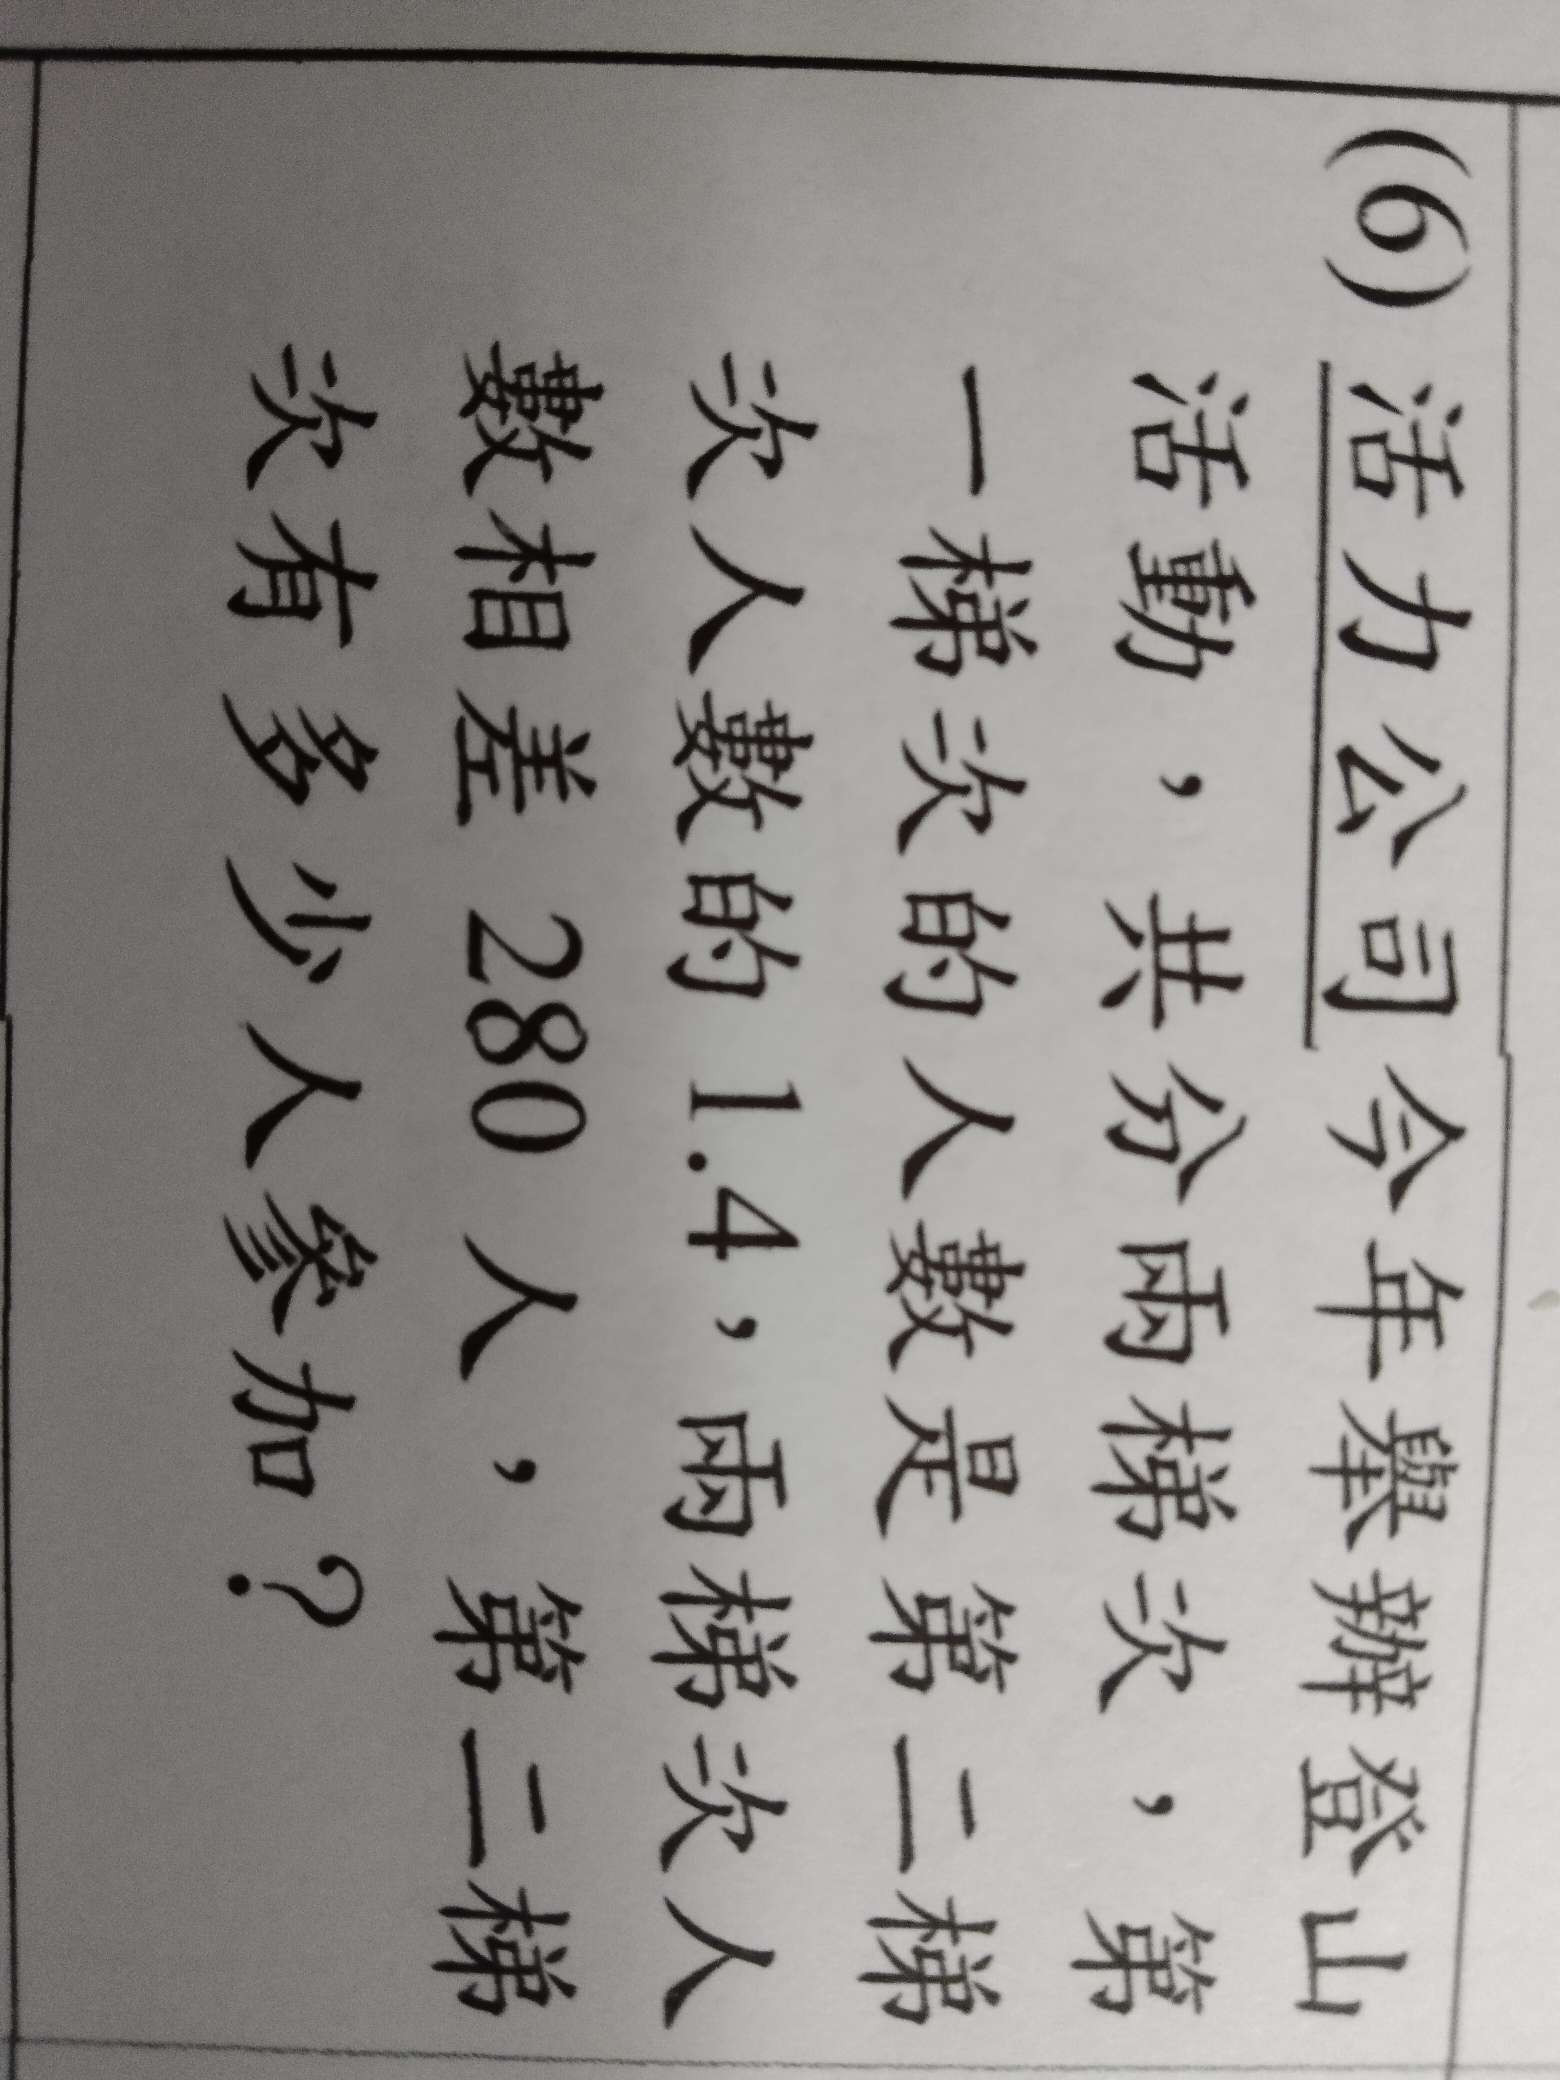 (6) 活力公司今年舉辦登山
活動，共分兩梯次，第
一梯次的人數是第二梯
次人數的 1.4，兩梯次人
數相差 280 人，第二梯
次有多少人參加？